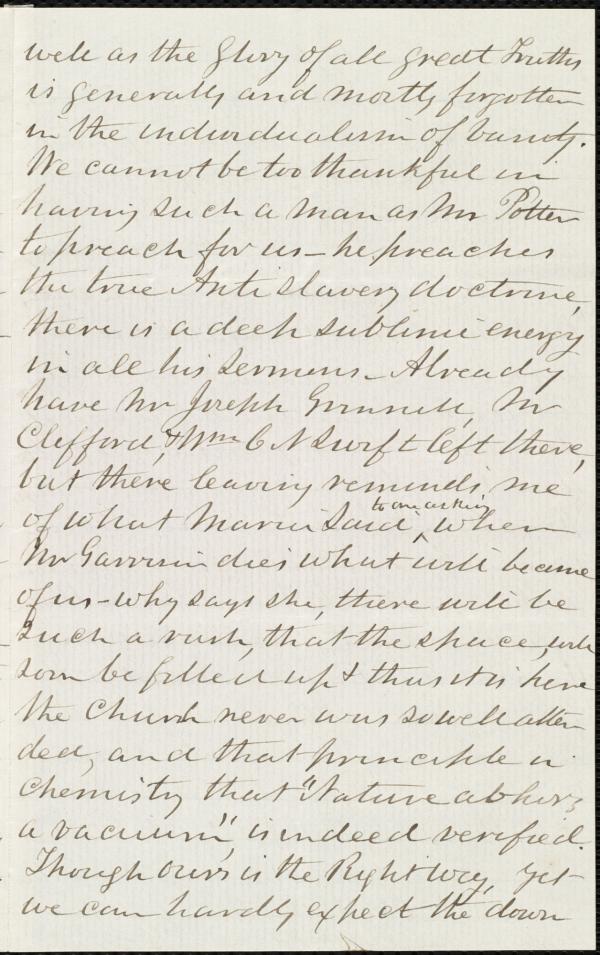 well as the Glory of all great Truths
is generally and mostly forgotten
in the individualism of vanity.
We cannot be too thankful in
having such a man as Mr Potter
to preach for us - he preaches
the true Anti slavery doctrine,
there is a deep sublime energy
in all his sermons - Already
have Mr Joseph Grinnell, Mr
Clefford, & Wm C N Swift left there,
but there leaving reminds me
of what Maria said, when
to one asking
Mr Garrison dies what will become
of us - why says she, there will be
such a rush, that the space, will
soon be filled up & thus it is here
the Church never was so well atten
ded, and that principle in
Chemistry that "Nature abhors
a vacuum", is indeed verified.
Though ours is the Right way, yet
we can hardly expect the down